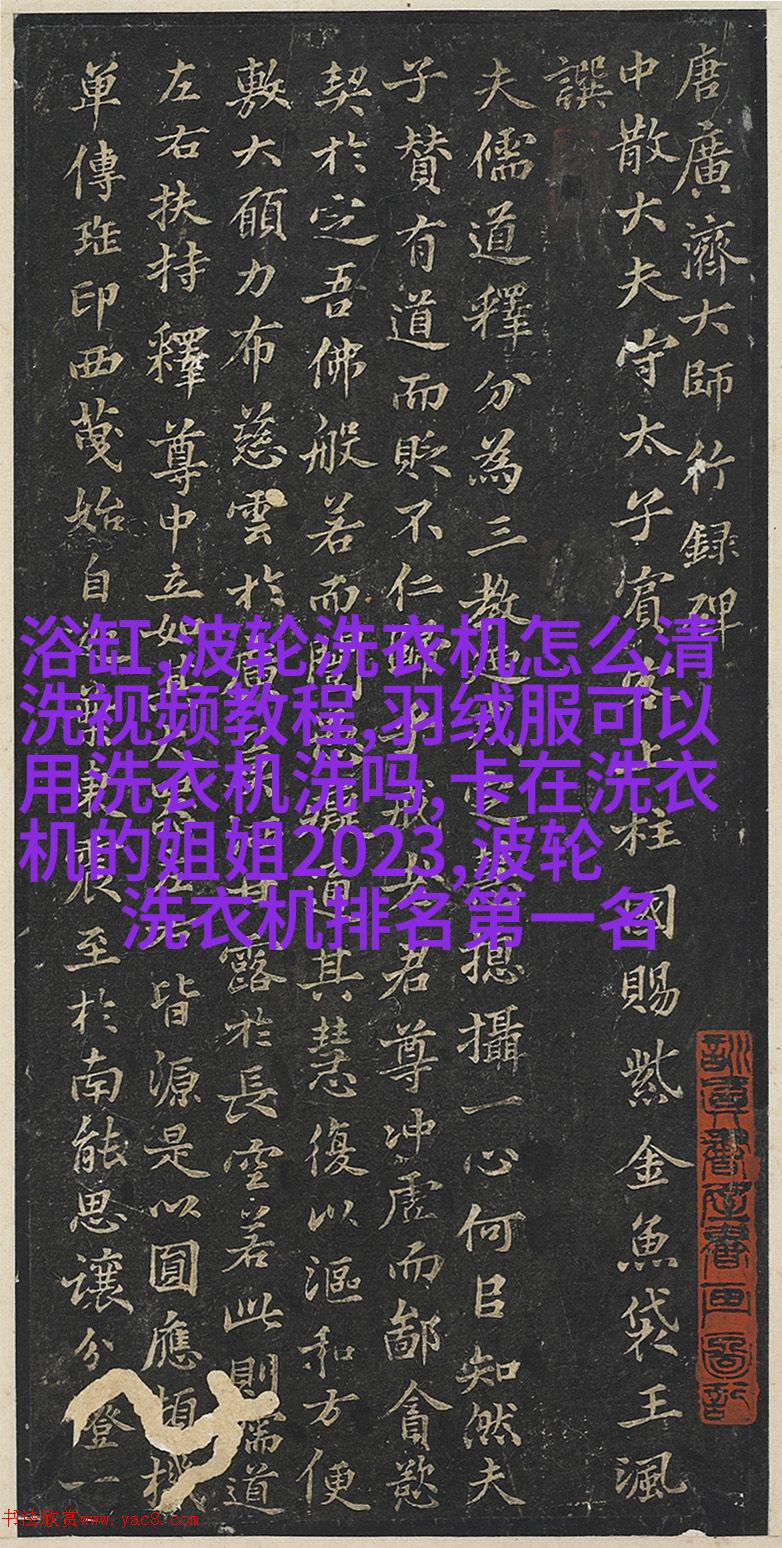 唐廣濟大師行録碑
中散大夫守太子賓客上柱國賜紫金魚袋王渢
譔
夫儒道釋分為三教摠攝一心何㠯知然夫
子賛有道而貶不仁君尊冲虛而鄙貪慾
契於㝎吾佛般若而其慧復以漚和方便
敷大願力布慈雲於露於長空若此則儒道
左右扶持釋尊中立如皆源是以圓應頓機
單傳印西始自震至於南能思讓分燈一
浴缸,波轮洗衣机怎么清
洗视频教程,羽绒服可以
用洗衣机洗吗,卡在洗衣
机的姐姐2023,波轮
洗衣机排名第一名
书法欣赏www.yac8.com